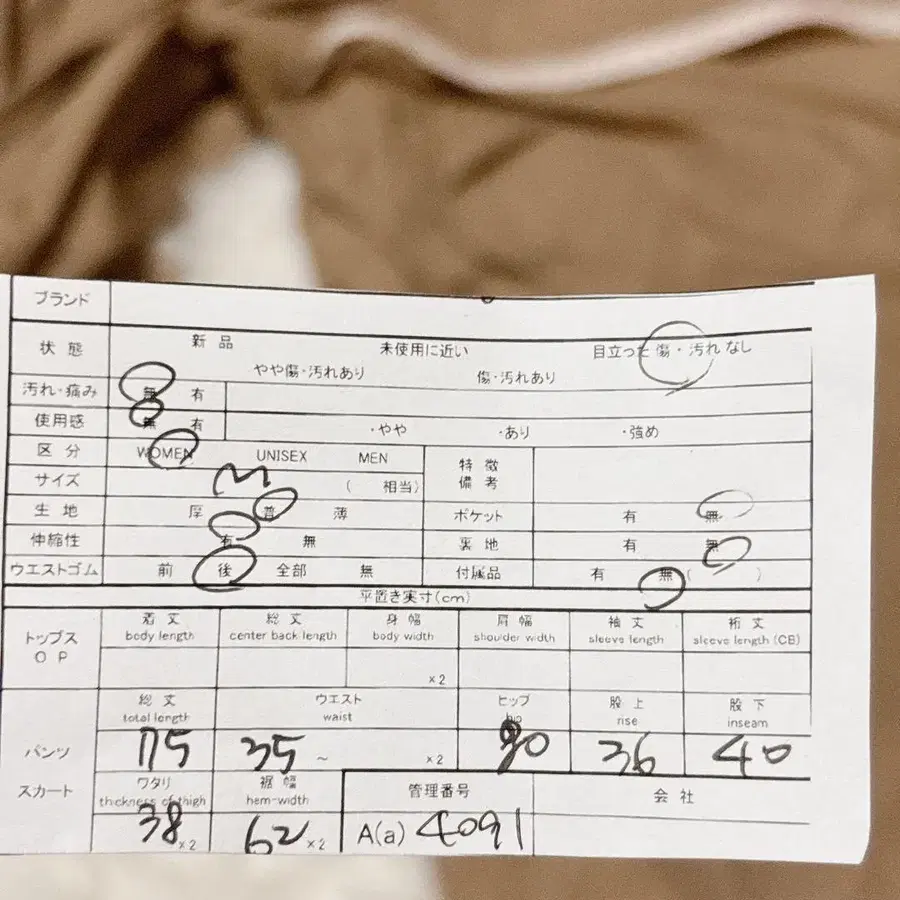 ブランド
状態 新品 未使用に近い 目立った傷・汚れなし
やや傷・汚れあり 傷・汚れあり
汚れ・痛み 無 有
使用感 無 有 ・やや ・あり ・強め
区分 WOMEN UNISEX MEN 特徴備考
サイズ M ( 相当)
生地 厚 普 薄 ポケット 有 無
伸縮性 有 無 裏地 有 無
ウエストゴム 前 後 全部 無 付属品 有 無 ( )
平置き実寸(cm)
トップス OP 着丈 総丈 身幅 肩幅 袖丈 裄丈
body length center back length body width shoulder width sleeve length sleeve length (CB)
×2
総丈 ウエスト ヒップ 股上 股下
total length waist hip rise inseam
パンツ 75 35 ~ ×2 36 40
スカート ワタリ 裾幅 管理番号 会社
thickness of thigh hem-width
38 ×2 62 ×2 A(a) 4091